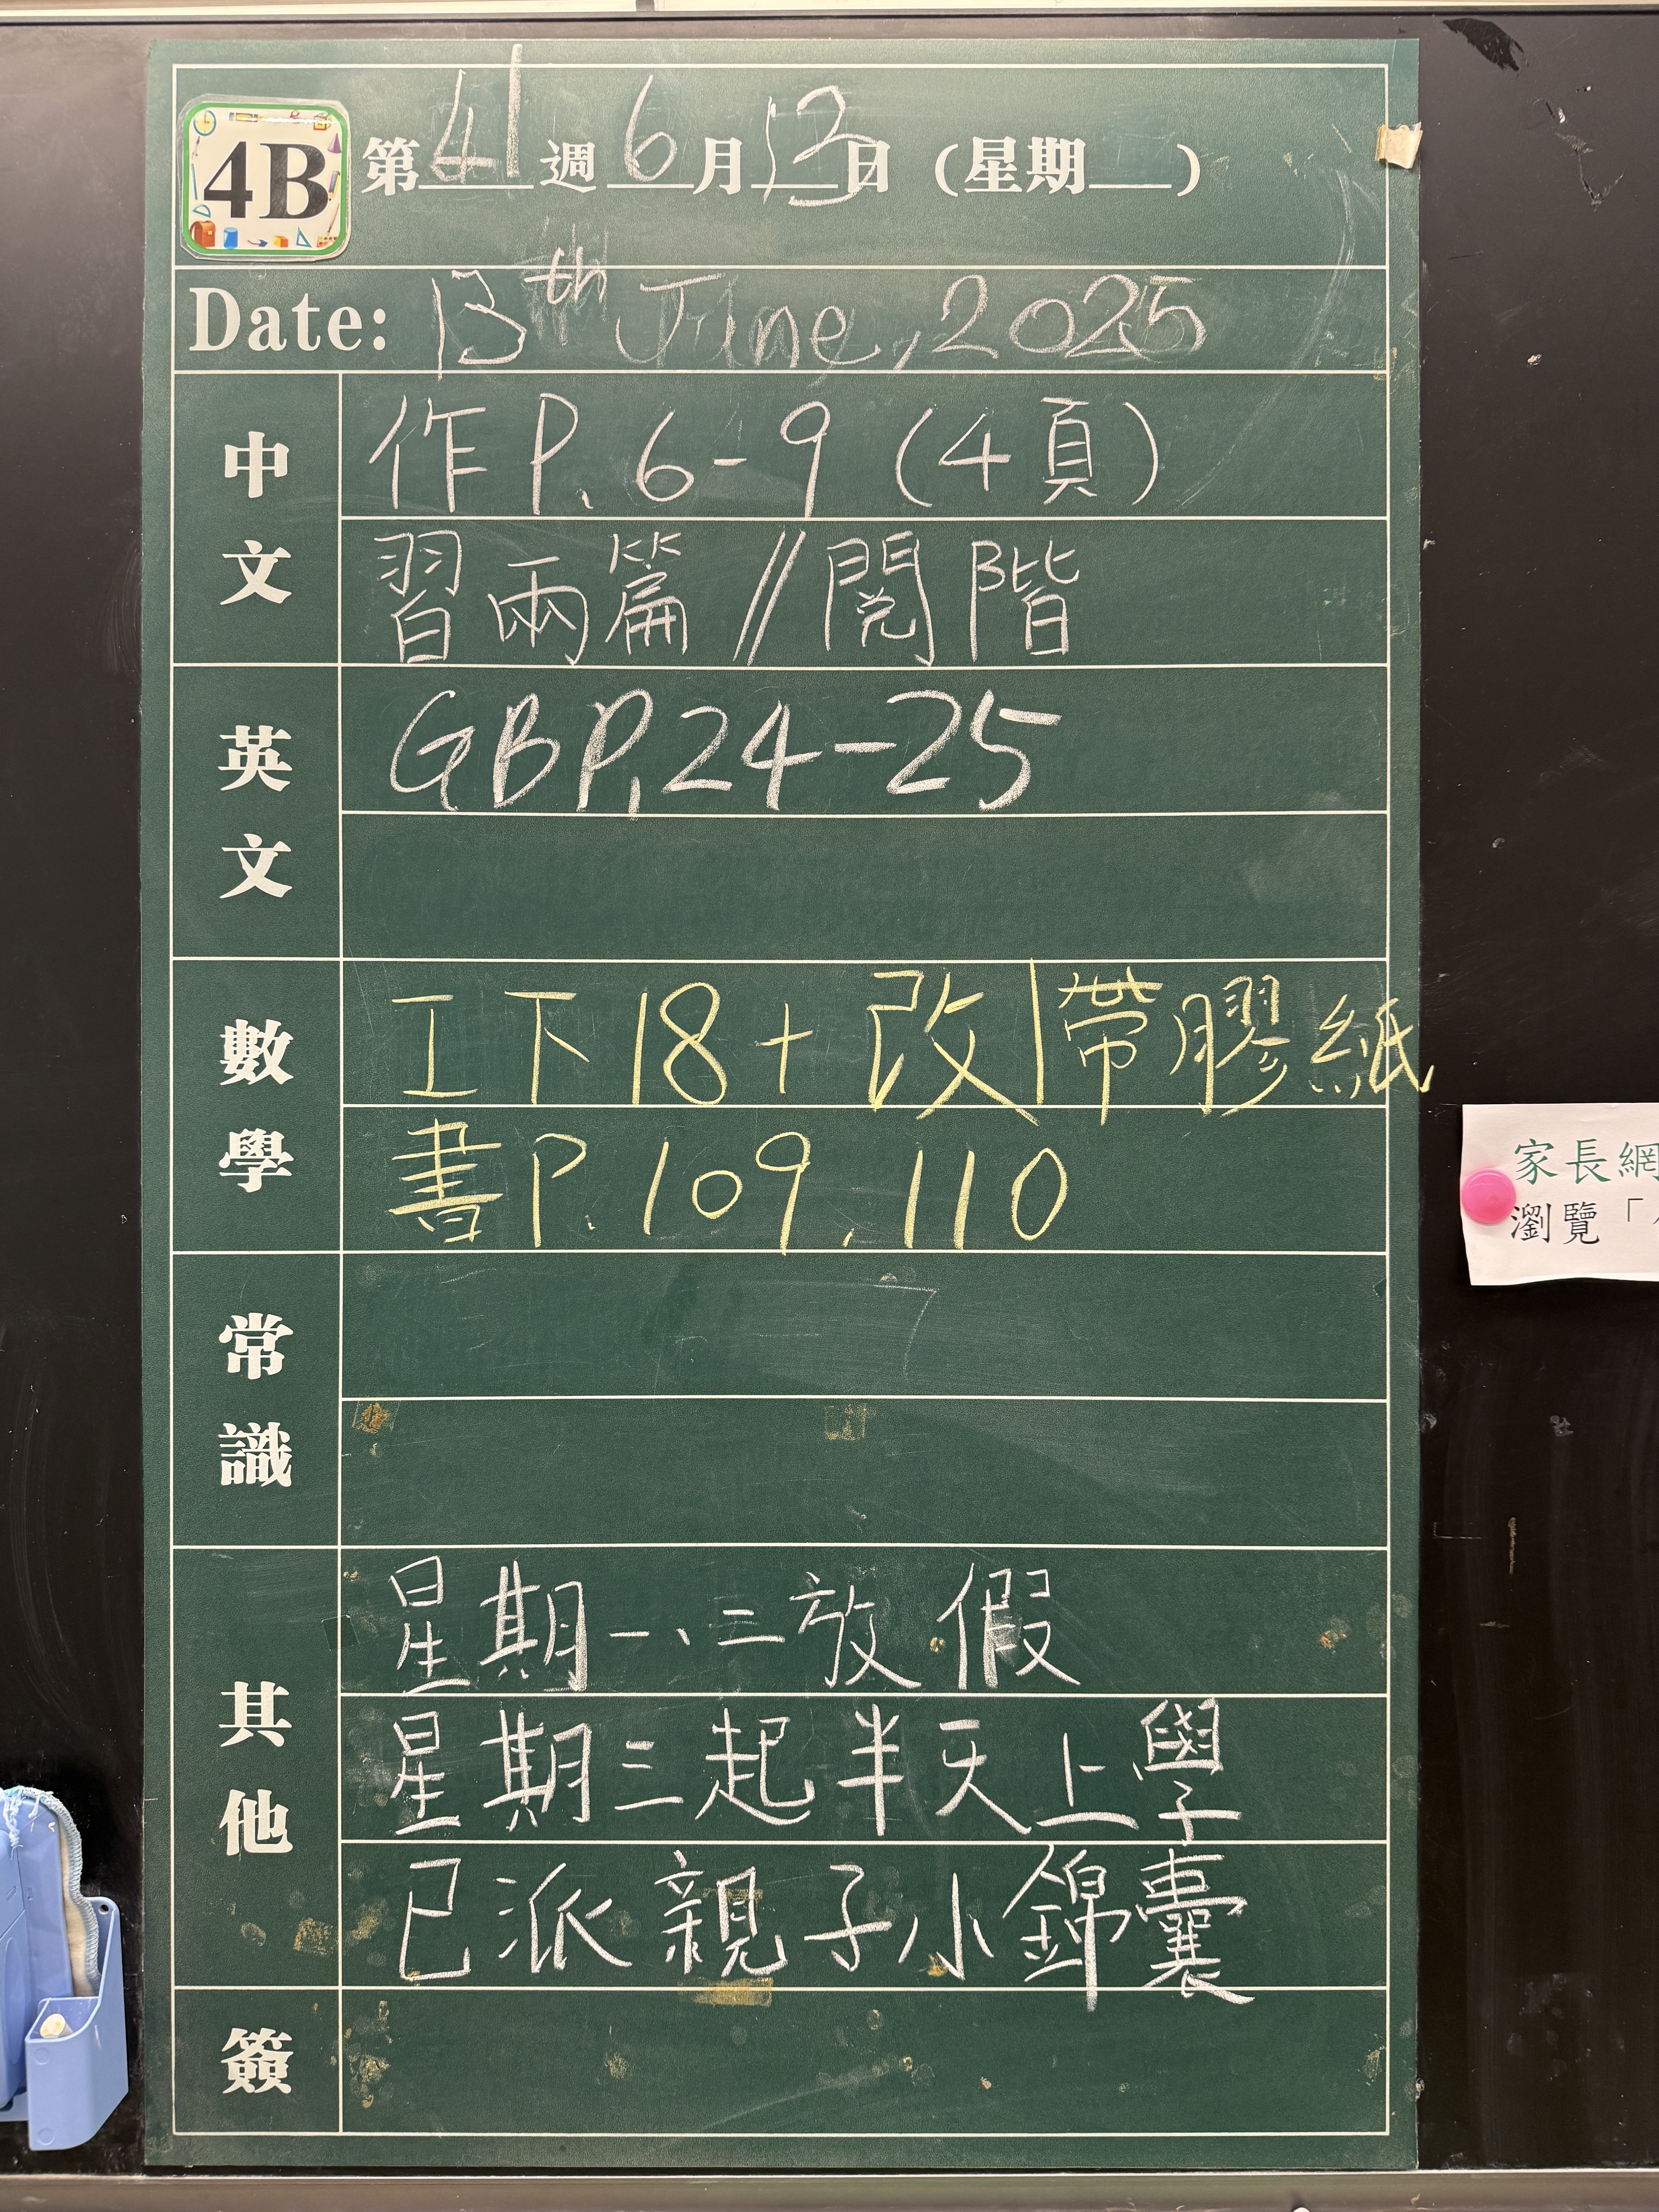 4B 第41週6月13日（星期__）
Date: 13th June, 2025
中文
作P.6-9（4頁）
習兩篇//閱階
英文
GBP.24-25
數學
工下18+改|帶膠紙
書P.109,110
常識
其他
星期一、二放假
星期三起半天上學
已派親子小錦囊
簽
家長網
瀏覽「